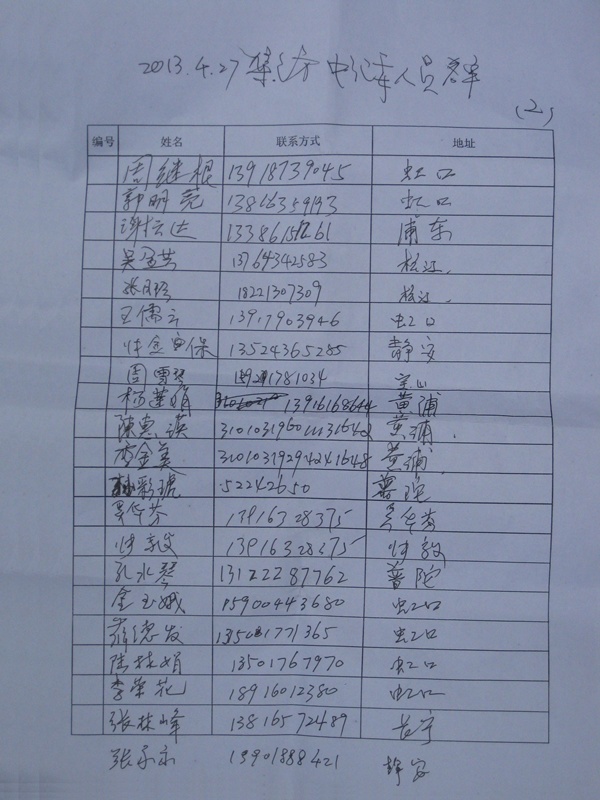 2013.4.27 集访中纪委人员名单
(2)
编号 姓名 联系方式 地址
周继根 13918739045 虹口
郭明亮 13816359193 虹口
谢坛达 13386151261 浦东
吴金芬 13764342583 松江.
张风珍 18221307309 松江.
王儒云 13917903946 虹口
仲金保 13524365285 静安
周雪琴 1781034 宝山
杨莲娟 13916168644 黄浦
陈惠英 黄浦.
李金美 31010319294241648 黄浦.
彩琥 52242650 普陀
吴华芬 13916328375 吴华芬
帅敏 13916328275 帅敏
孔水琴 13122287762 普陀
金玉娥 15900443680 虹口
蒋德发 13501771365 虹口
陆桂娟 13501767970 虹口
李荣花 18916012380 虹口
张林峰 13816572489 长宁
张永 13901888421 静安